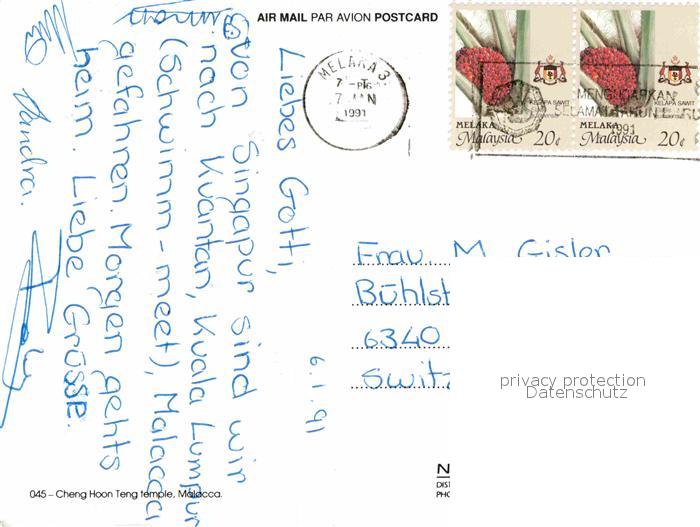 AIR MAIL PAR AVION POSTCARD
MELAKA 3
7 -PTG
7 JAN
1991
KELAPA SAWIT
MELAKA
Malaysia 20¢
KELAPA SAWIT
MELAKA
Malaysia 20¢
MENGUCAPKAN
SELAMAT TAHUN BARU
1991
6.1.91
Liebes Gotti,
Von Singapur sind wir
nach Kuantan, Kuala Lumpur
(Schwimm-meet), Malacca
gefahren. Morgen gehts
heim. Liebe Grüsse.
Sandra.
Frau M. Gisler
Bühlst
6340
Switz
privacy protection
Datenschutz
045 – Cheng Hoon Teng temple, Malacca.
N
DIST
PHO